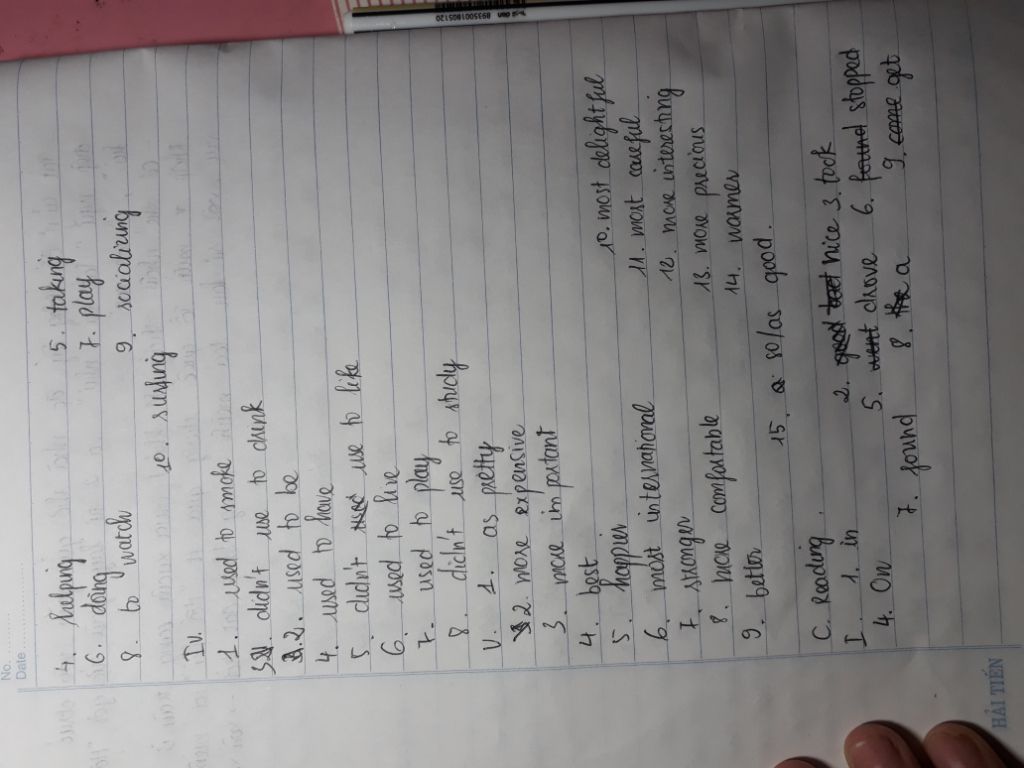 No.
Date
4. helping 5. taking
6. doing 7. play
8. to watch 9. socialising
10. surfing
IV.
1. used to smoke
3. didn't use to drink
2. used to be
4. used to have
5. didn't used use to like
6. used to live
7. used to play
8. didn't use to study
V. 1. as pretty
2. more expensive
3. more important
4. best 10. most delightful
5. happier 11. most careful
6. most international 12. more interesting
7. stronger 13. more precious
8. more comfortable 14. warmer
9. better 15. so/as good.
C. Reading.
I. 1. in 2. good nice 3. took
4. On 5. went drove 6. found stopped
7. found 8. the a 9. came get
HẢI TIẾN
8935001805120